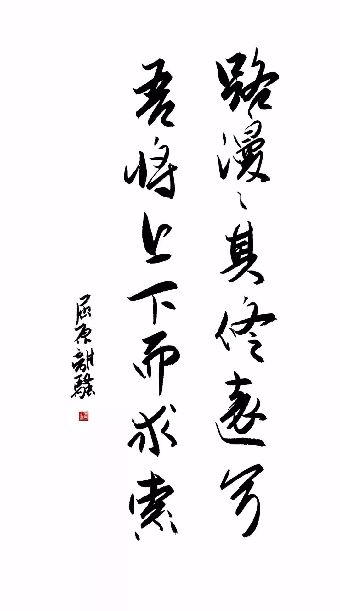 路漫〻其修遠兮
吾將上下而求索
屈原離騷